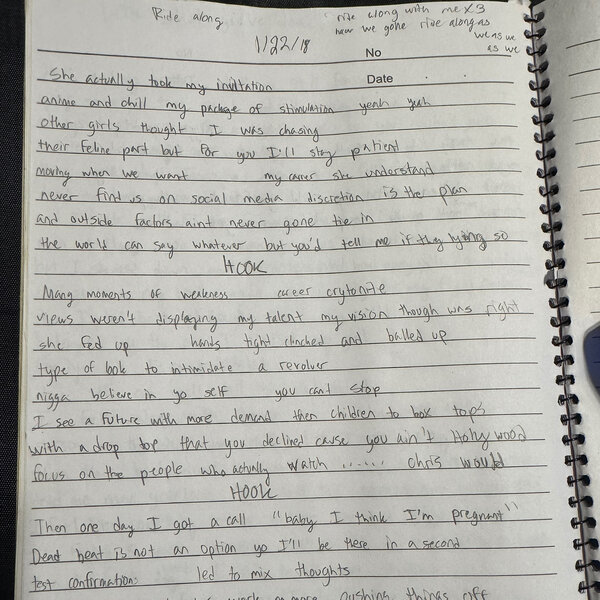 Ride along
ride along with me x3
how we gone ride along as
we as we
as we
1/22/18
No
Date
She actually took my invitation
anime and chill my package of stimulation yeah yeah
other girls thought I was chasing
their feline part but for you I'll stay patient
moving when we want my career she understand
never find us on social media discretion is the plan
and outside factors aint never gone tie in
the world can say whatever but you'd tell me if they lying so
HOOK
Many moments of weakness career crytonite
views weren't displaying my talent my vision though was right
she fed up hands tight clinched and balled up
type of look to intimidate a revolver
nigga believe in yo self you cant stop
I see a future with more demand then children to box tops
with a drop top that you declined cause you ain't Hollywood
focus on the people who actually watch ...... Chris would
HOOK
Then one day I got a call "baby I think I'm pregnant"
Dead beat is not an option yo I'll be there in a second
test confirmation: led to mix thoughts
work more pushing things off